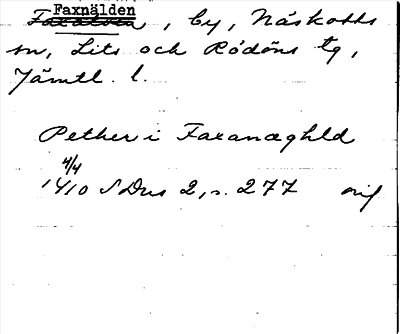 Faxnälden
, by, Näskotts
sn, Lits och Rödöns tg,
Jämtl. l.
Pether i Faxanæghld
4/4
1410 SDns 2, s. 277 orig